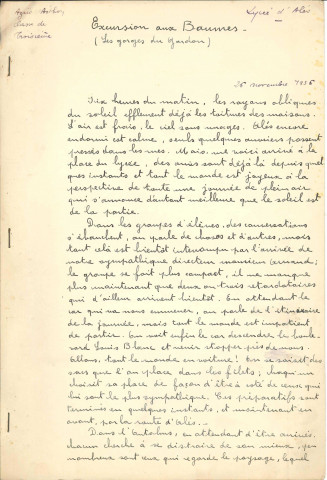 Lycée d'Alès
Classe de
Troisième
Excursion aux Baumes -
(Les gorges du Gardon)
25 novembre 1956
Dix heures du matin, les rayons obliques
du soleil effleurent déjà les toitures des maisons.
L'air est froid, le ciel sans nuages. Alès encore
endormi est calme, seuls quelques ouvriers passent
pressés dans les rues. Mais me voici arrivé à la
place du lycée, des amis sont déjà là depuis quel
ques instants et tout le monde est joyeux à la
perspective de toute une journée de plein air
qui s'annonce d'autant meilleure que le soleil est
de la partie.
Dans les groupes d'élèves, des conversations
s'ébauchent, on parle de choses et d'autres, mais
tout cela est bientôt interrompu par l'arrivée de
notre sympathique directeur monsieur
le groupe se fait plus compact, il ne manque
plus maintenant que deux ou trois retardataires
qui d'ailleur arrivent bientôt. En attendant le
car qui va nous emmener, on parle de l'itinéraire
de la journée, mais tout le monde est impatient
de partir. On voit enfin le car descendre le boule
vard Louis Blanc et venir stopper près de nous.
Allons, tout le monde en voiture! On se saisit des
sacs que l'on place dans les filets, chacun
choisit sa place de façon d'être à côté de ceux qui
lui sont le plus sympathique. Ces préparatifs sont
terminés en quelques instants, et maintenant en
avant, par la route d'Alès...
Dans l'autobus, en attendant d'être arrivés,
chacun cherche à se distraire de son mieux,
nombreux sont ceux qui regarde le paysage, lequel